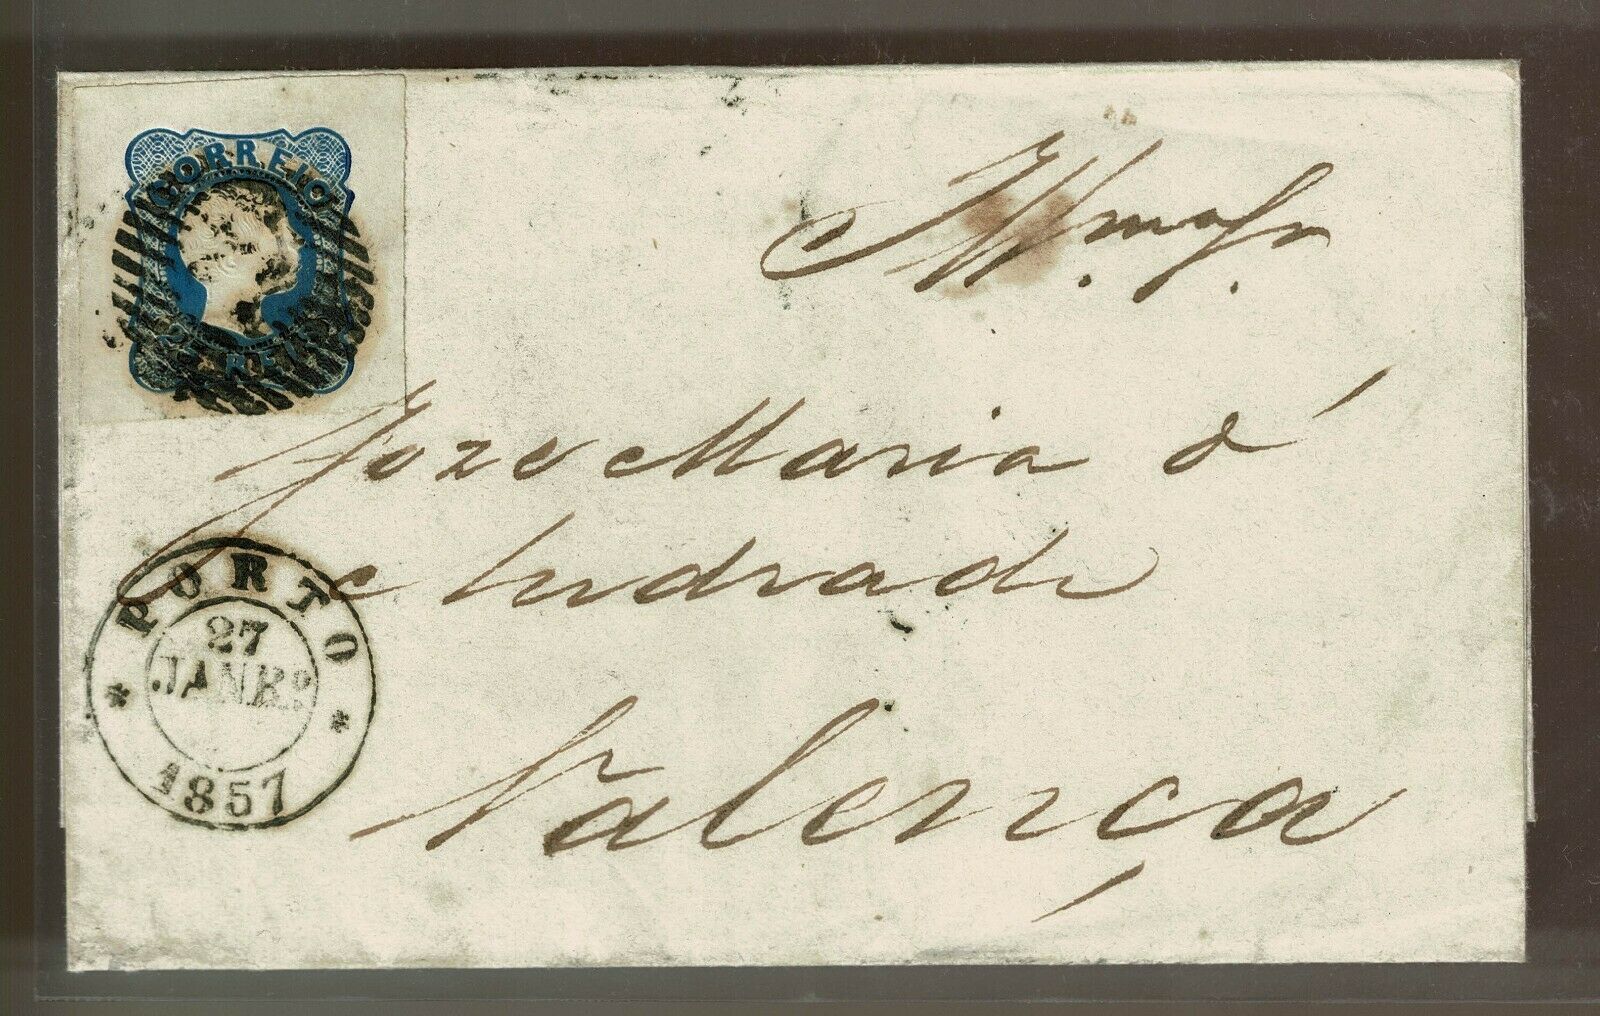 CORREIO
REIS
Joze Maria d'
Andrade
Valença
PORTO
27
JANRº
1857